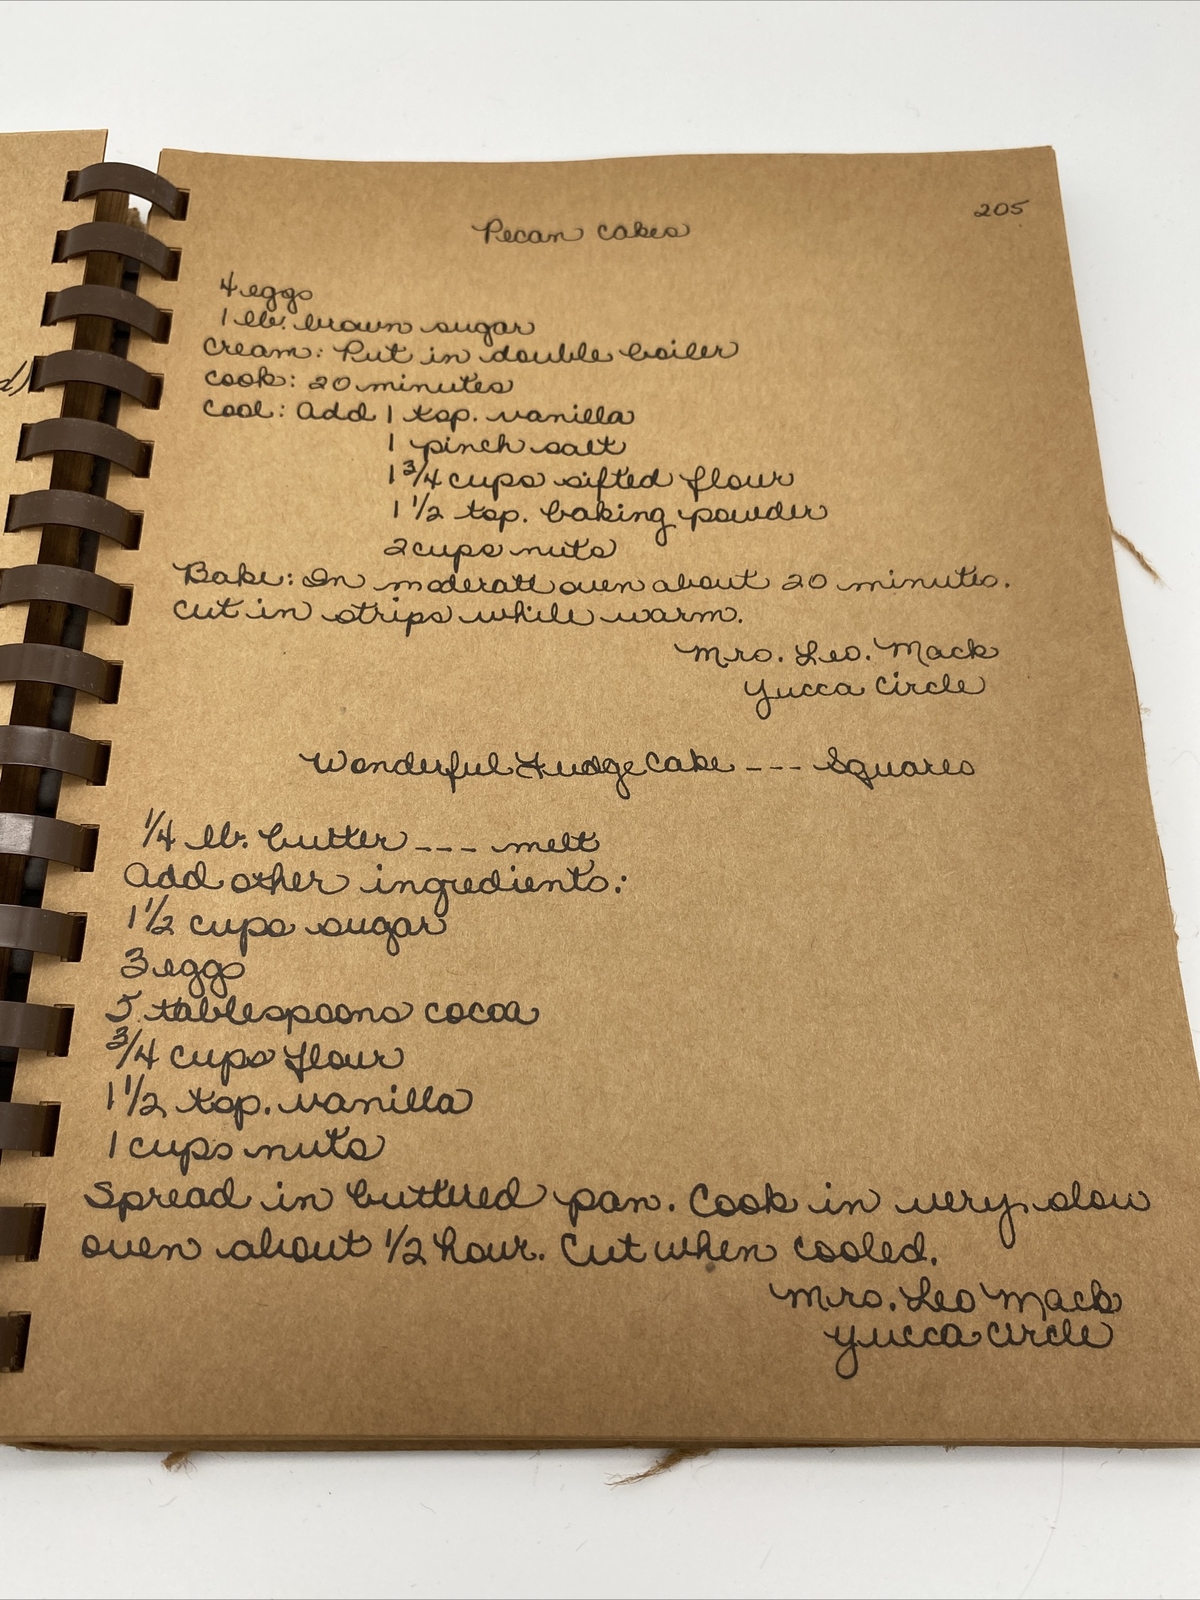 d)
205
Pecan Cakes
4 eggs
1 lb. brown sugar
Cream: Put in double boiler
Cook: 20 minutes
Cool: Add 1 tsp. vanilla
1 pinch salt
1 3/4 cups sifted flour
1 1/2 tsp. baking powder
2 cups nuts
Bake: In moderate oven about 20 minutes.
Cut in strips while warm.
Mrs. Leo. Mack
Yucca Circle
Wonderful Fudge Cake --- Squares
1/4 lb. butter --- melt
Add other ingredients:
1 1/2 cups sugar
3 eggs
5 tablespoons cocoa
3/4 cups flour
1 1/2 tsp. vanilla
1 cups nuts
Spread in buttered pan. Cook in very slow
oven about 1/2 hour. Cut when cooled.
Mrs. Leo Mack
Yucca Circle